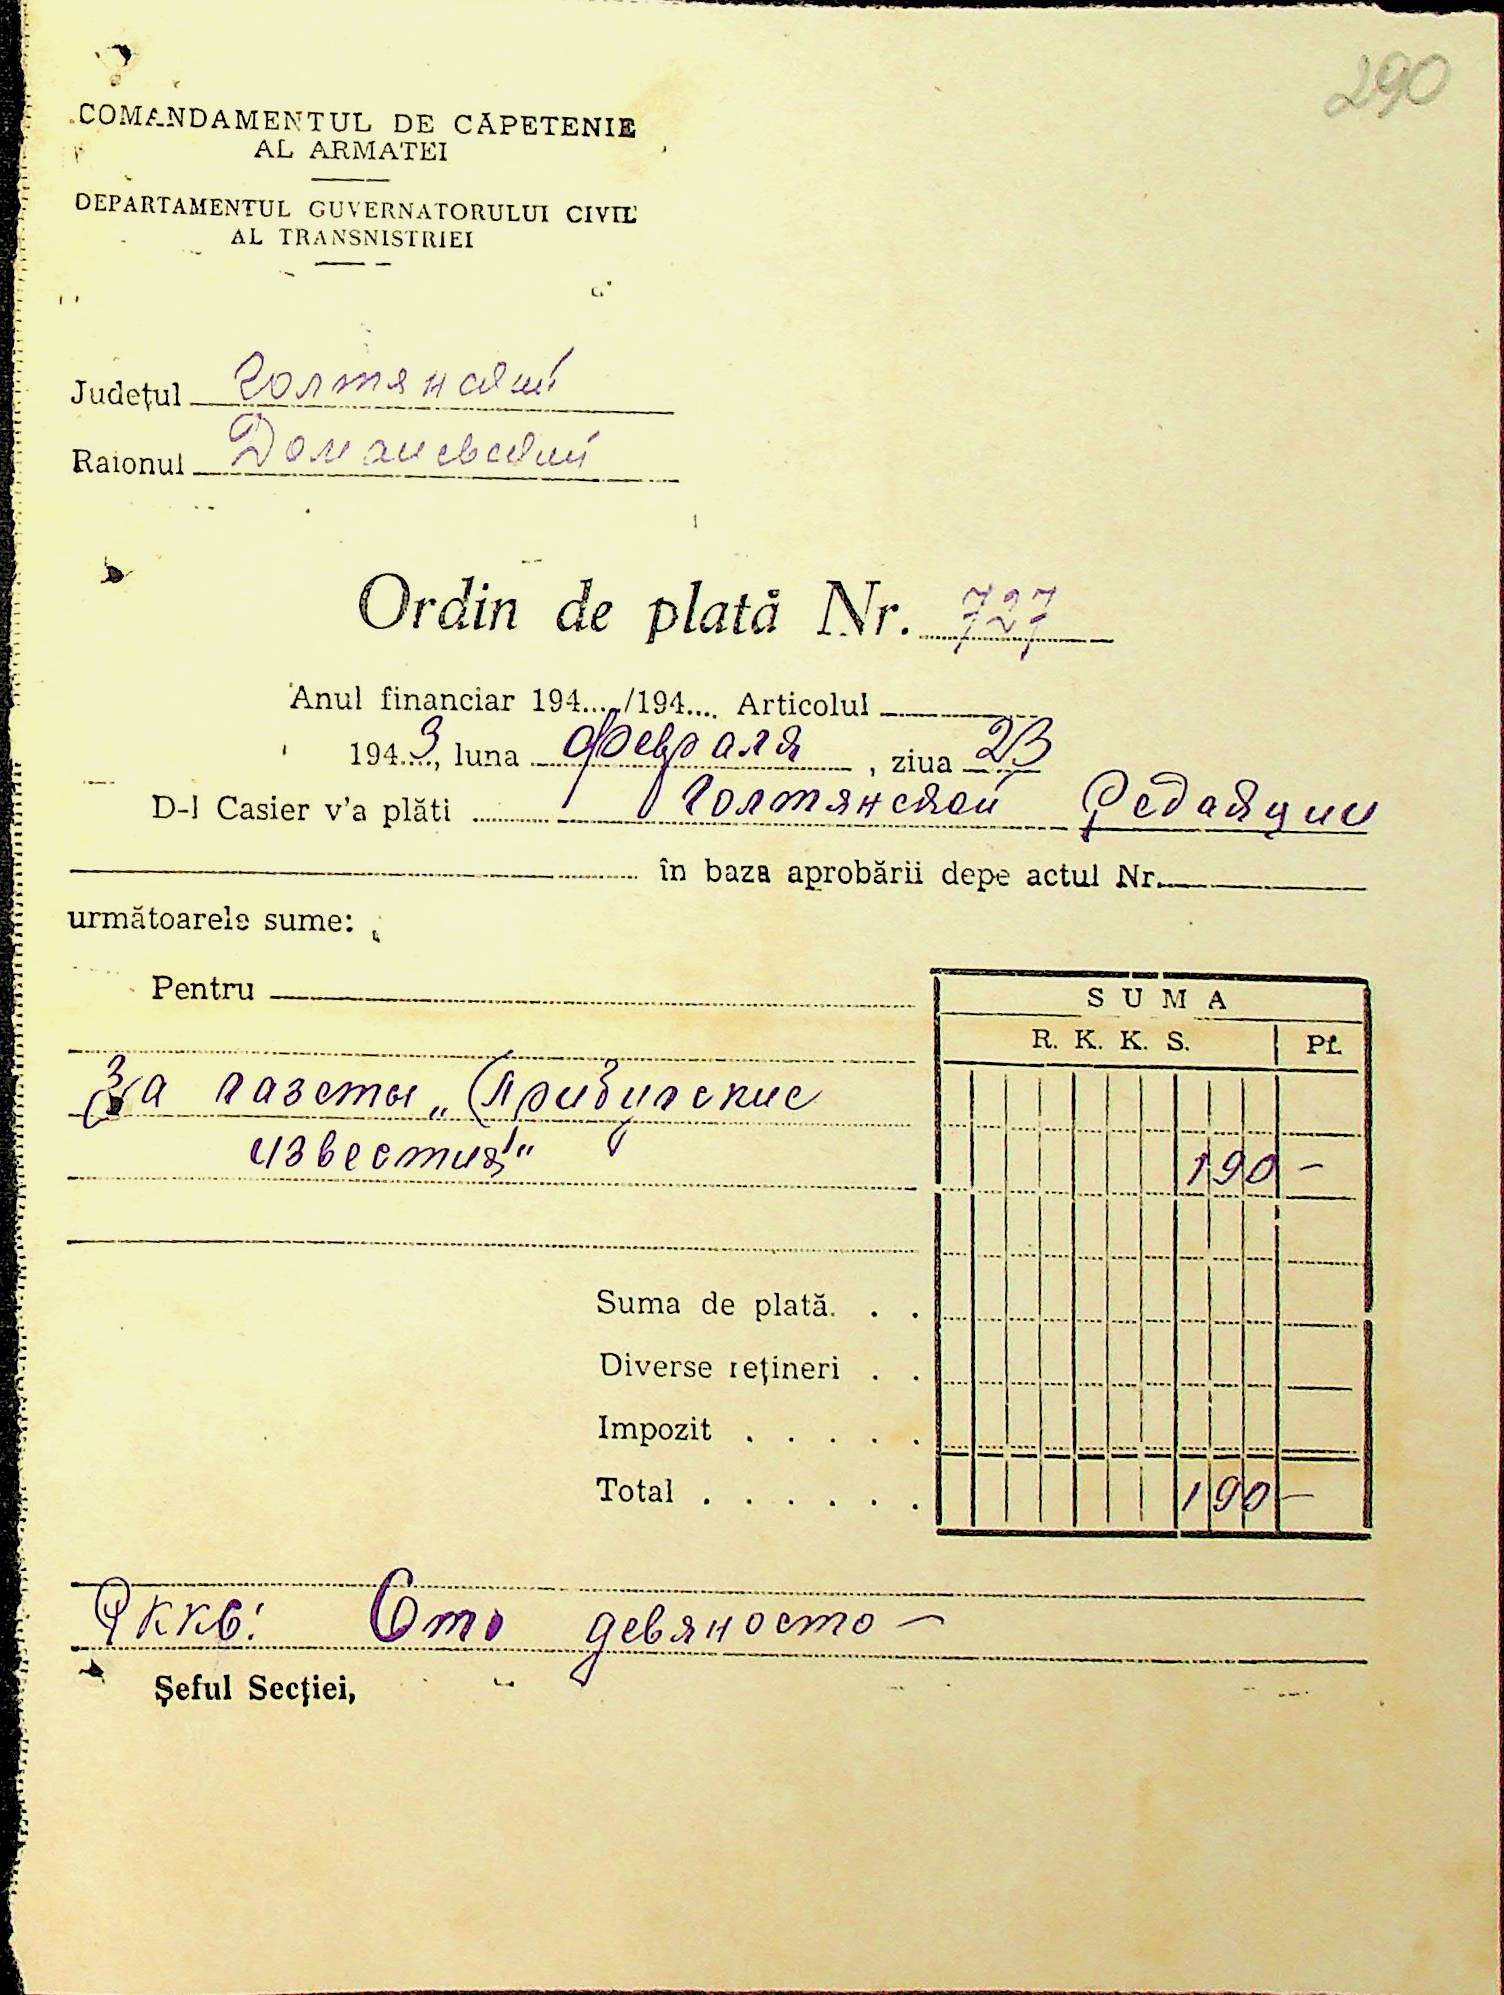 290
COMANDAMENTUL DE CĂPETENIE
AL ARMATEI
DEPARTAMENTUL GUVERNATORULUI CIVIL
AL TRANSNISTRIEI
Județul Голтянский
Raionul Доманевский
Ordin de plată Nr. 727
Anul financiar 194..../194.... Articolul
1943, luna февраля, ziua 23
D-l Casier v'a plăti Голтянской Редакции
în baza aprobării depe actul Nr.
următoarele sume:
Pentru
SUMA
R. K. K. S. Pf.
За газеты „Прибугские
известия" 190 -
Suma de plată. . .
Diverse rețineri . .
Impozit . . . . .
Total . . . . . . 190 -
РККС: Сто девяносто -
Șeful Secției,